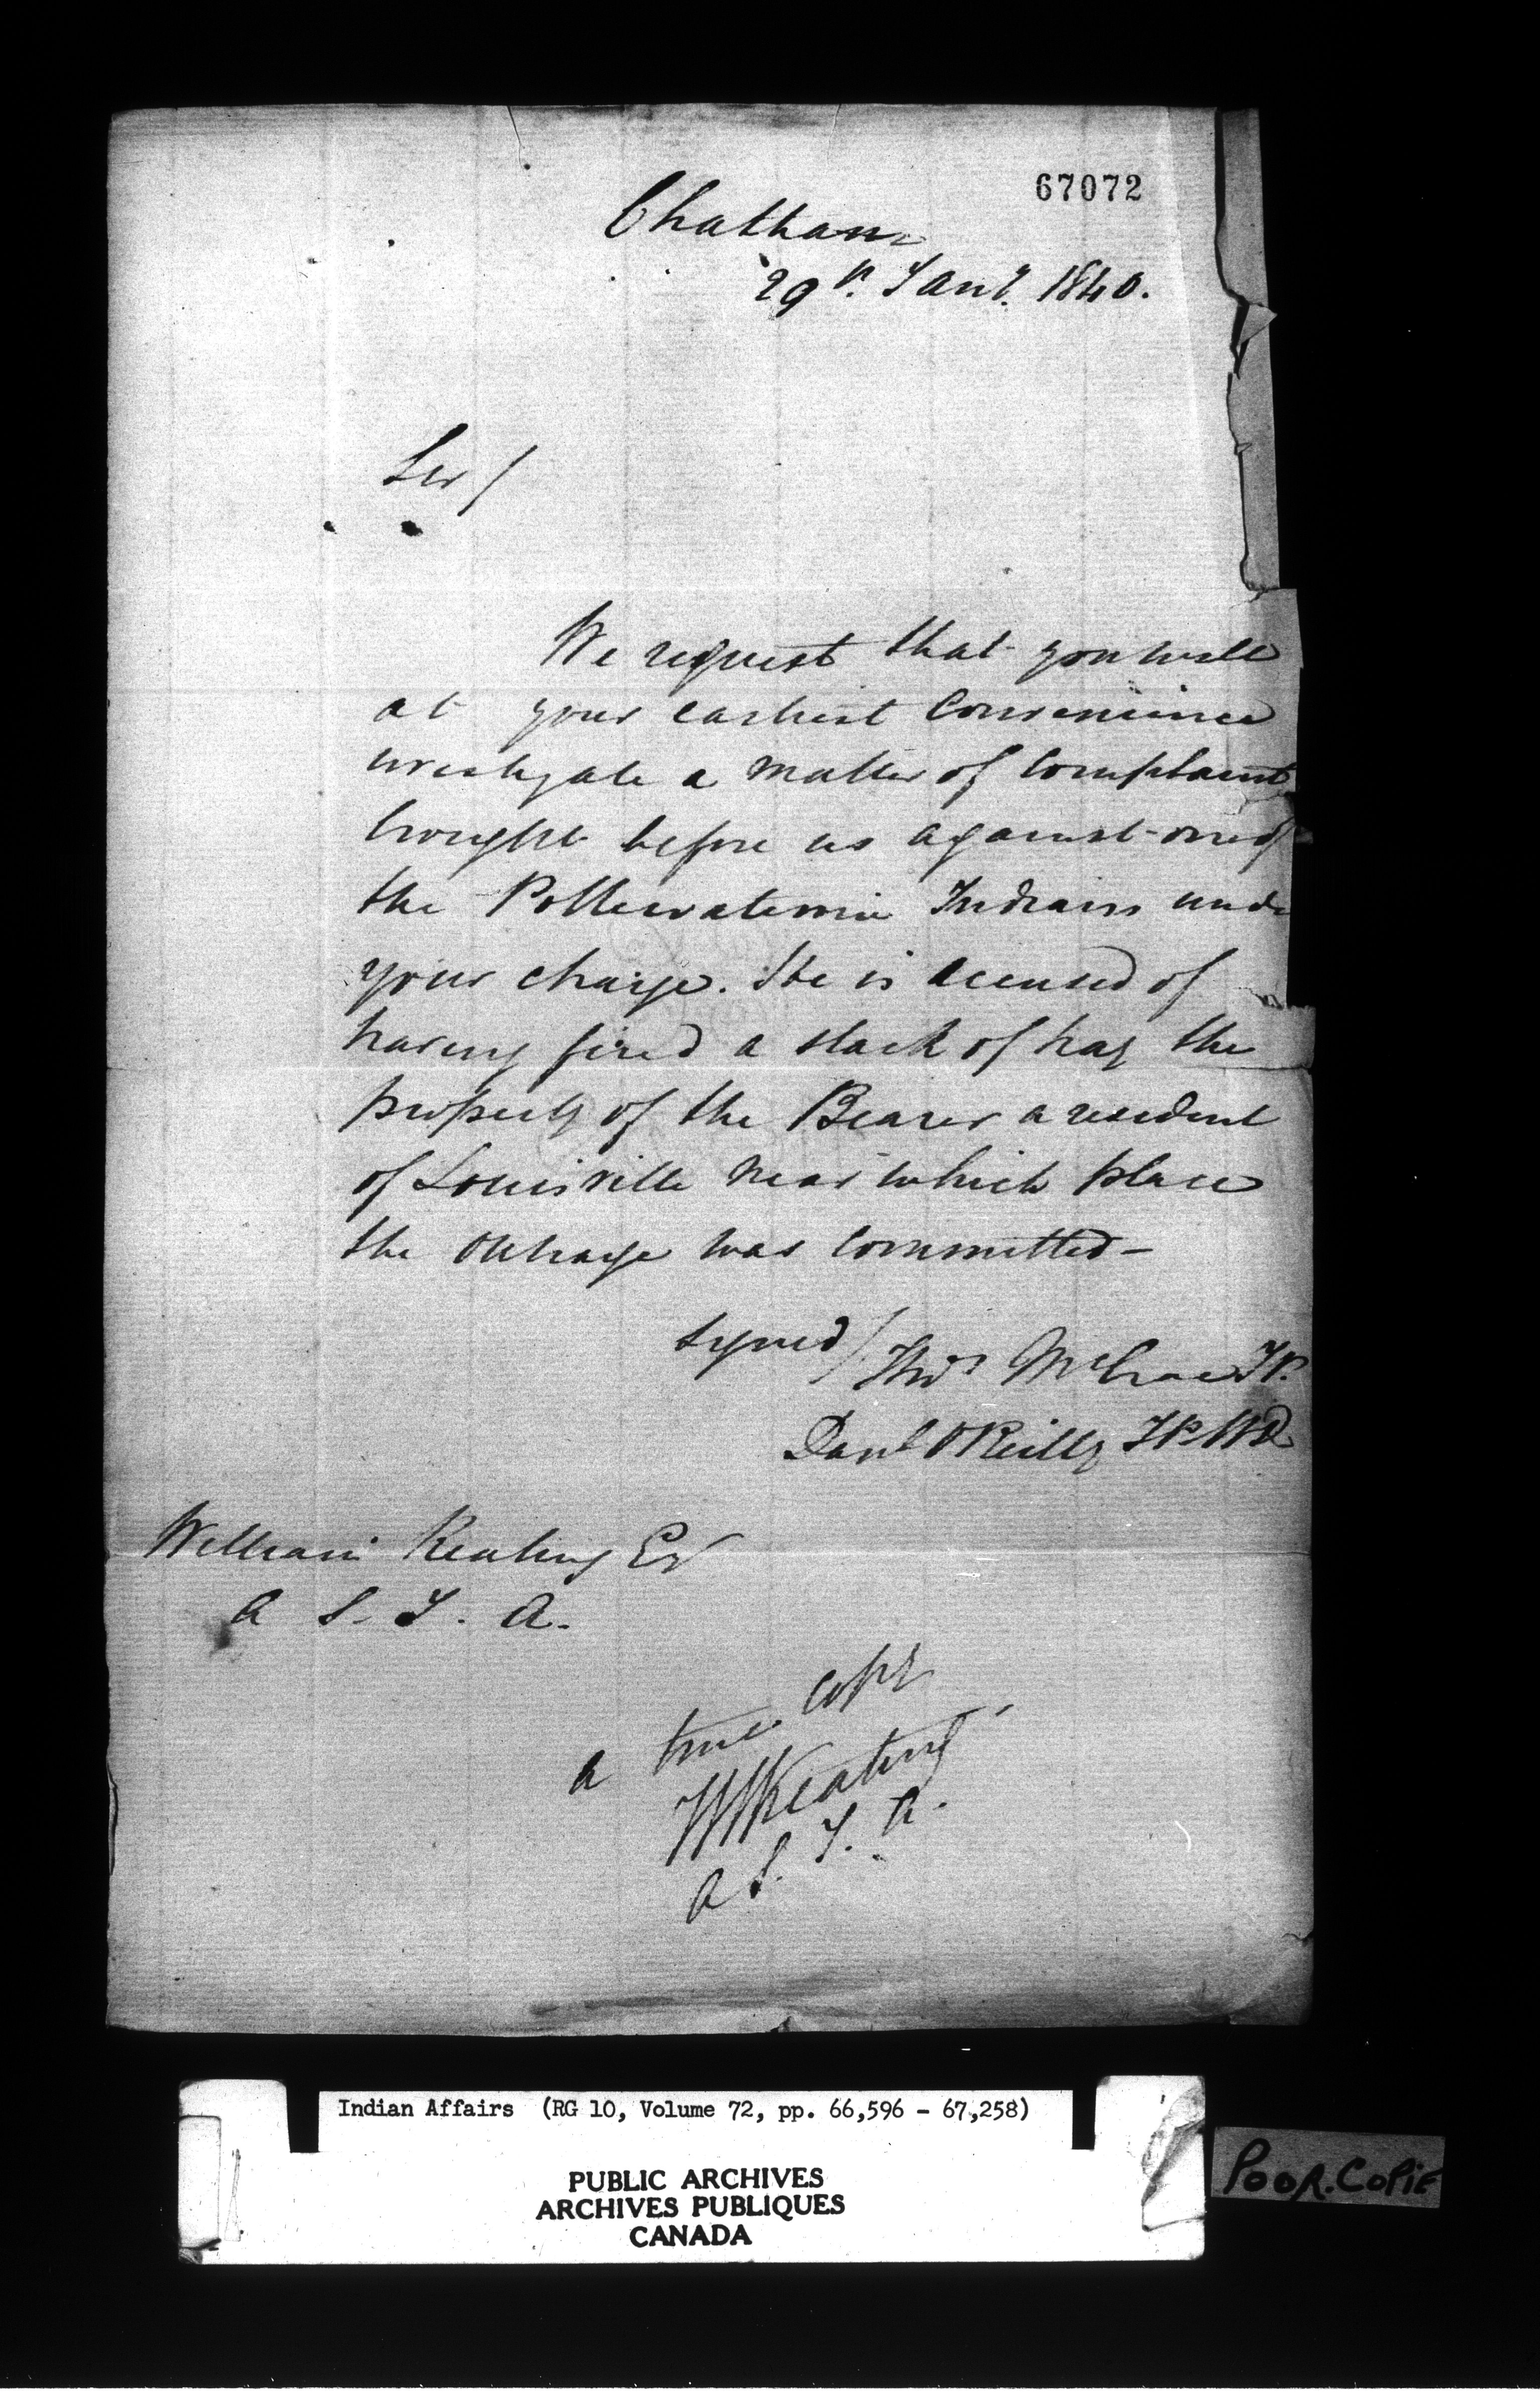 67072
Chatham
29th Jany. 1840.
Sir/
We request that you will
at your earliest Convenience
investigate a matter of Complaint
brought before us against one of
the Pottewatemie Indians under
your charge. He is accused of
having fired a stack of hay the
property of the Bearer a resident
of Louisville near which place
the outrage was Committed—
Signed/ Thos McCrae JP.
Danl OReilly JP WD
William Keating Esr
A S. I. A.
a true copy
JW Keating
A S. I. A.
Indian Affairs (RG 10, Volume 72, pp. 66,596 - 67,258)
PUBLIC ARCHIVES
ARCHIVES PUBLIQUES
CANADA
POOR.COPIE